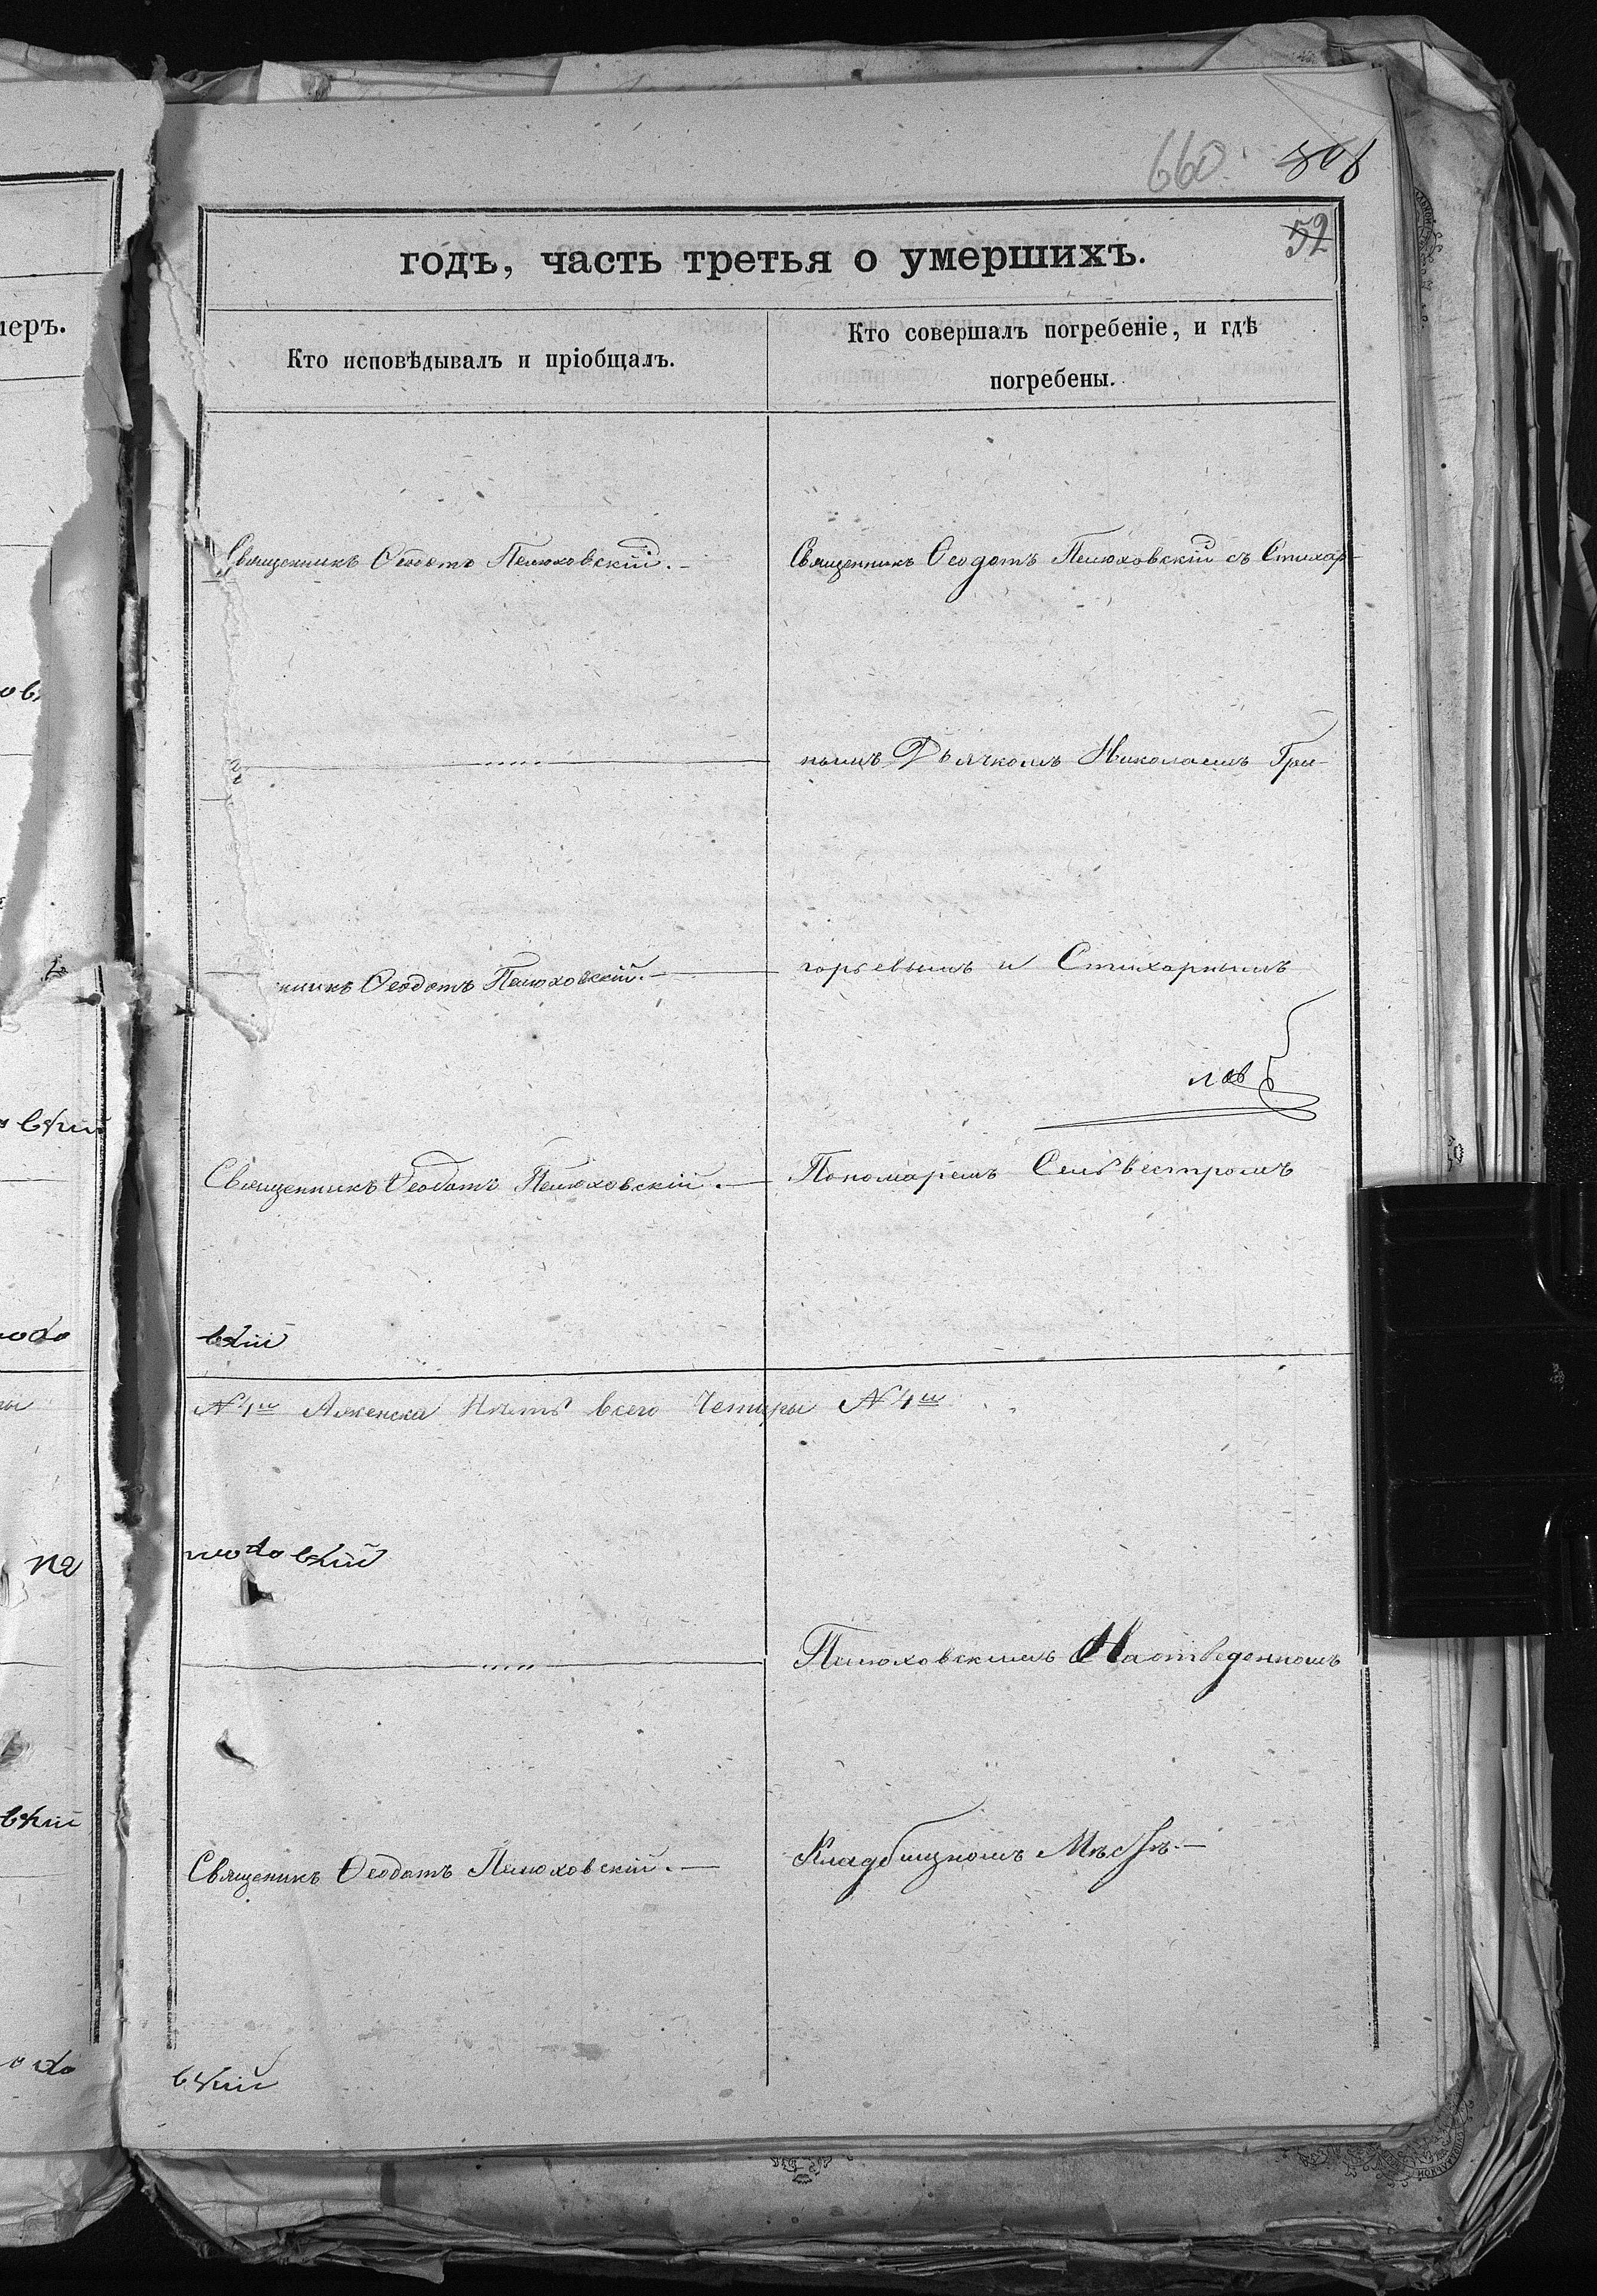 660.
52
годъ, часть третья о умершихъ.
меръ.
Кто исповѣдывалъ и пріобщалъ.
Кто совершалъ погребеніе, и гдѣ
погребены.
Священникъ Ѳеодотъ Пелюховскій.
Священникъ Ѳеодотъ Пелюховскій съ Стихар-
нымъ Дьячкомъ Николаемъ Гри-
никъ Ѳеодотъ Пелюховскій.
горьевымъ и Стихарнымъ
Священникъ Ѳеодотъ Пелюховскій.
Пономаремъ Сельвестромъ
вскій
N 4й А женска Нѣтъ всего Четыри N 4й
люховскій
Пелюховскимъ На отведенномъ
Священикъ Ѳеодотъ Пелюховскій.
Кладбищномъ Мѣстѣ.
вскій